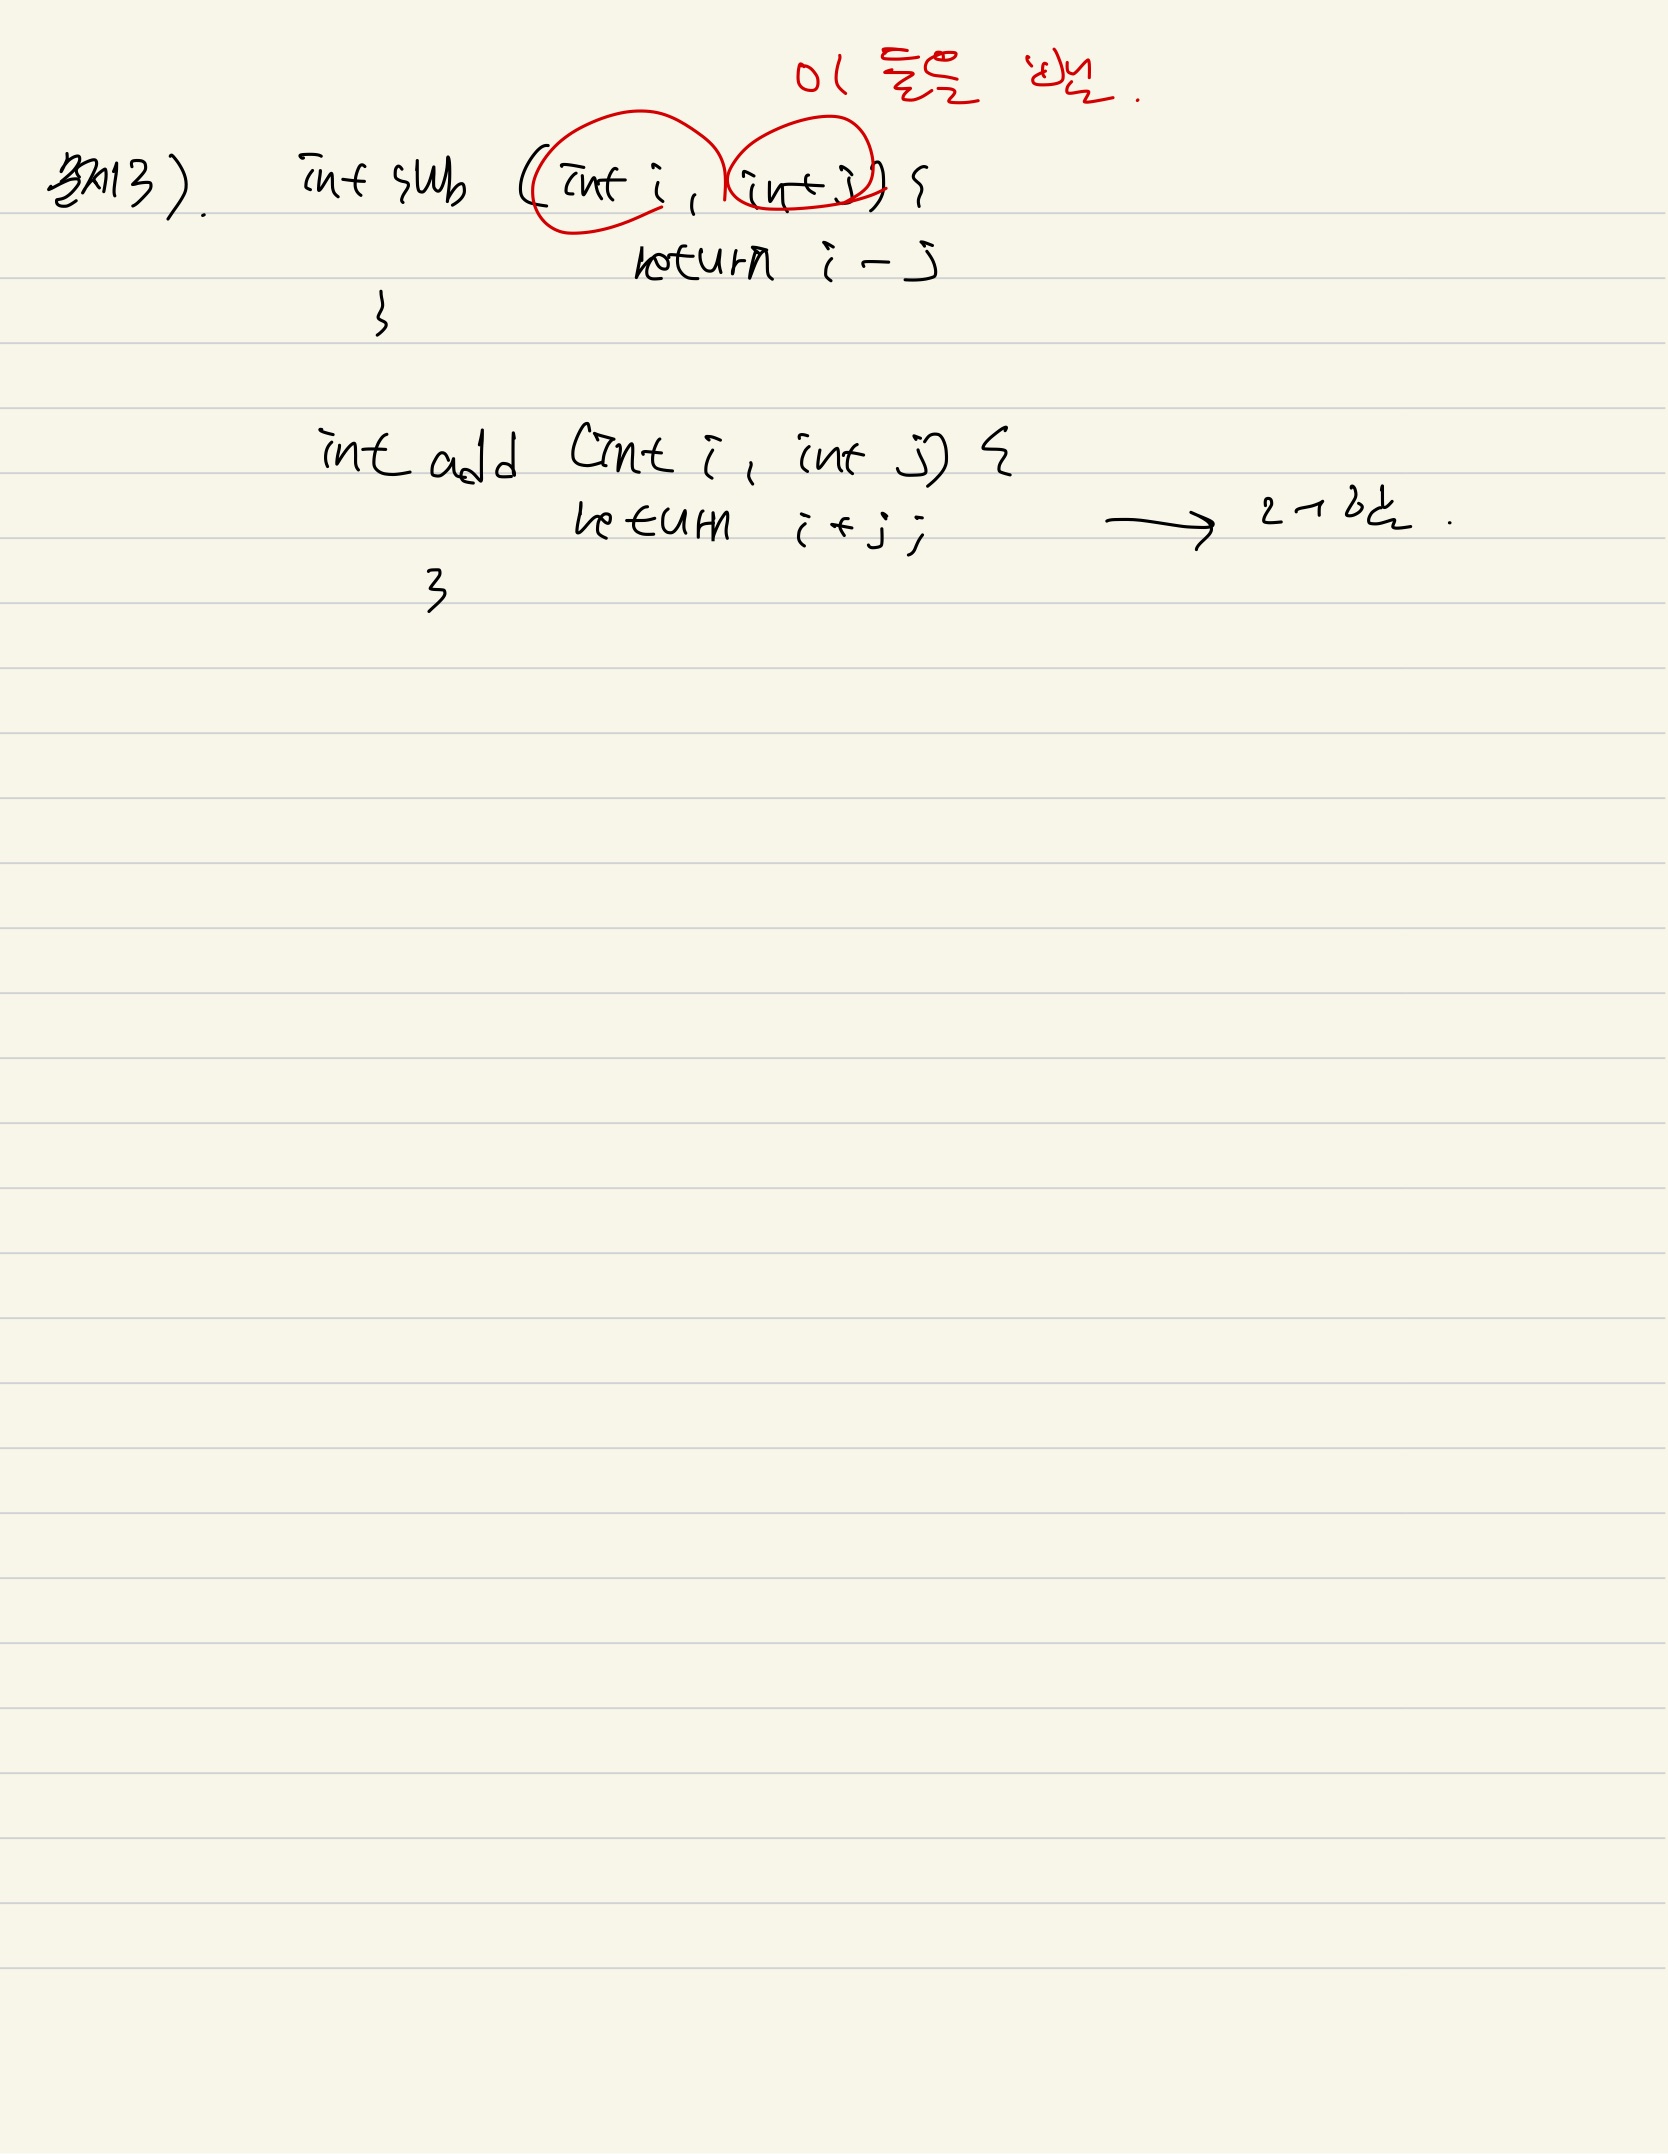 이 둘은 변수.
문제3).  int sub (int i, int j) {
return i - j
}
int add (int i, int j) {
return i + j;
}